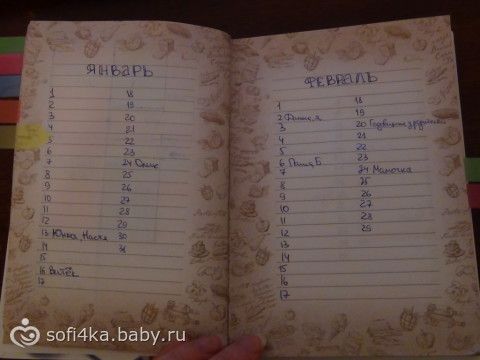 ЯНВАРЬ
1 18
2 19
3 20
4 21
5 22
6 23
7 24
8 25
9 26
10 27
11 28
12 29
13 Юлька, Настя 30
14 31
15
16 Витёк
17
ФЕВРАЛЬ
1 18
2 19
3 20 Годовщина
4 21
5 22
6 Паша Б. 23
7 24 Мамочка
8 25
9 26
10 27
11 28
12 29
13
14
15
16
17
sofi4ka.baby.ru